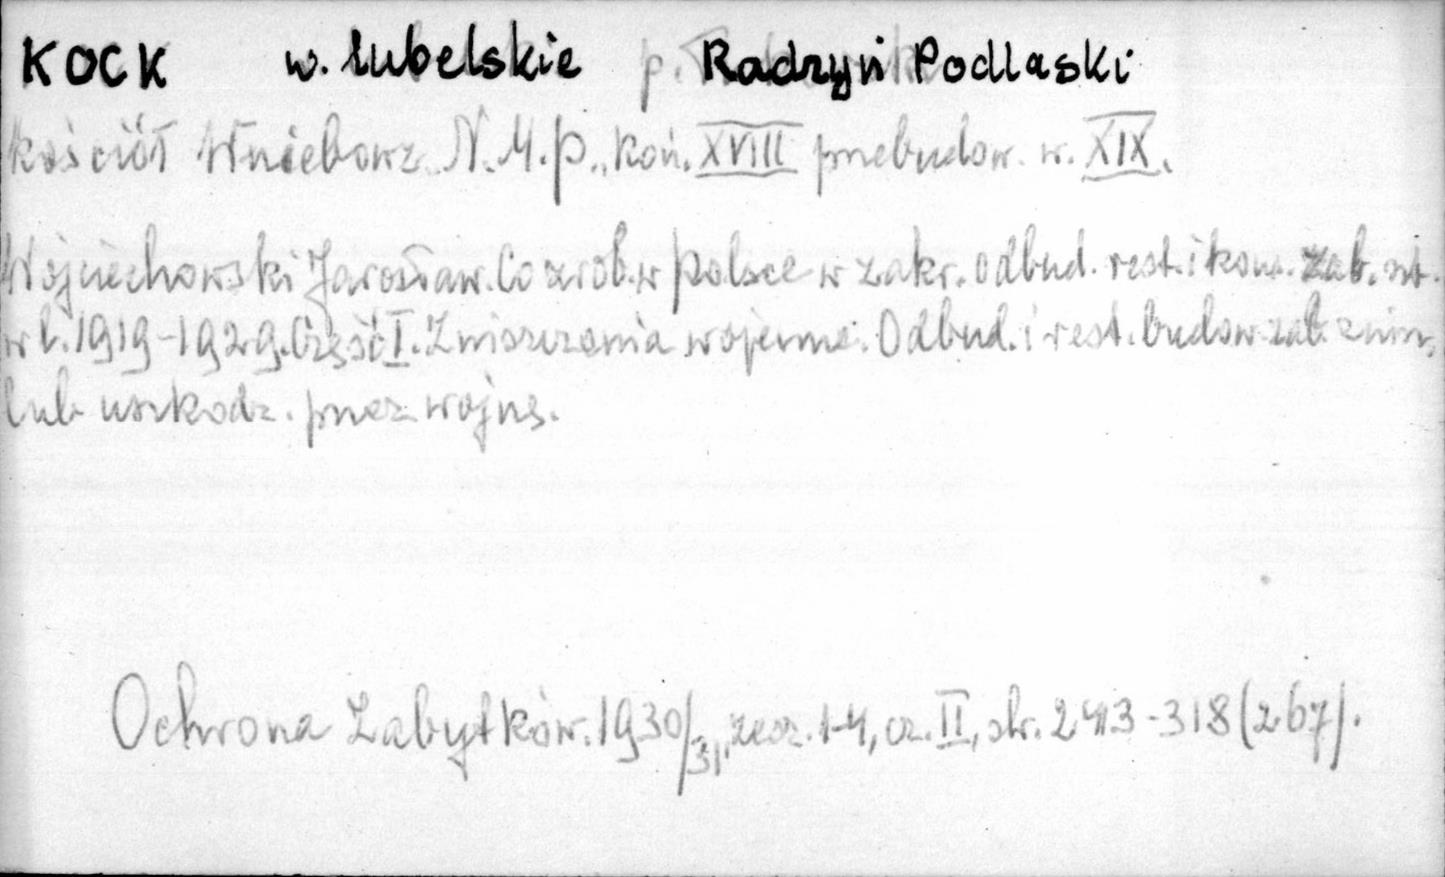 KOCK w. lubelskie p. Radzyń Podlaski
kościół Wniebowz. N.M.P., koń. XVIII przebudow. w. XIX.
Wojciechowski Jarosław. Co zrob. w Polsce w zakr. odbud. rest. i kons. zab. szt.
w l. 1919-1929. Część I. Zniszczenia wojenne. Odbud. i rest. budow. zab. zniszcz.
lub uszkodz. przez wojnę.
Ochrona Zabytków. 1930/31, zesz. 1-4, cz. II, str. 243-318 (267).